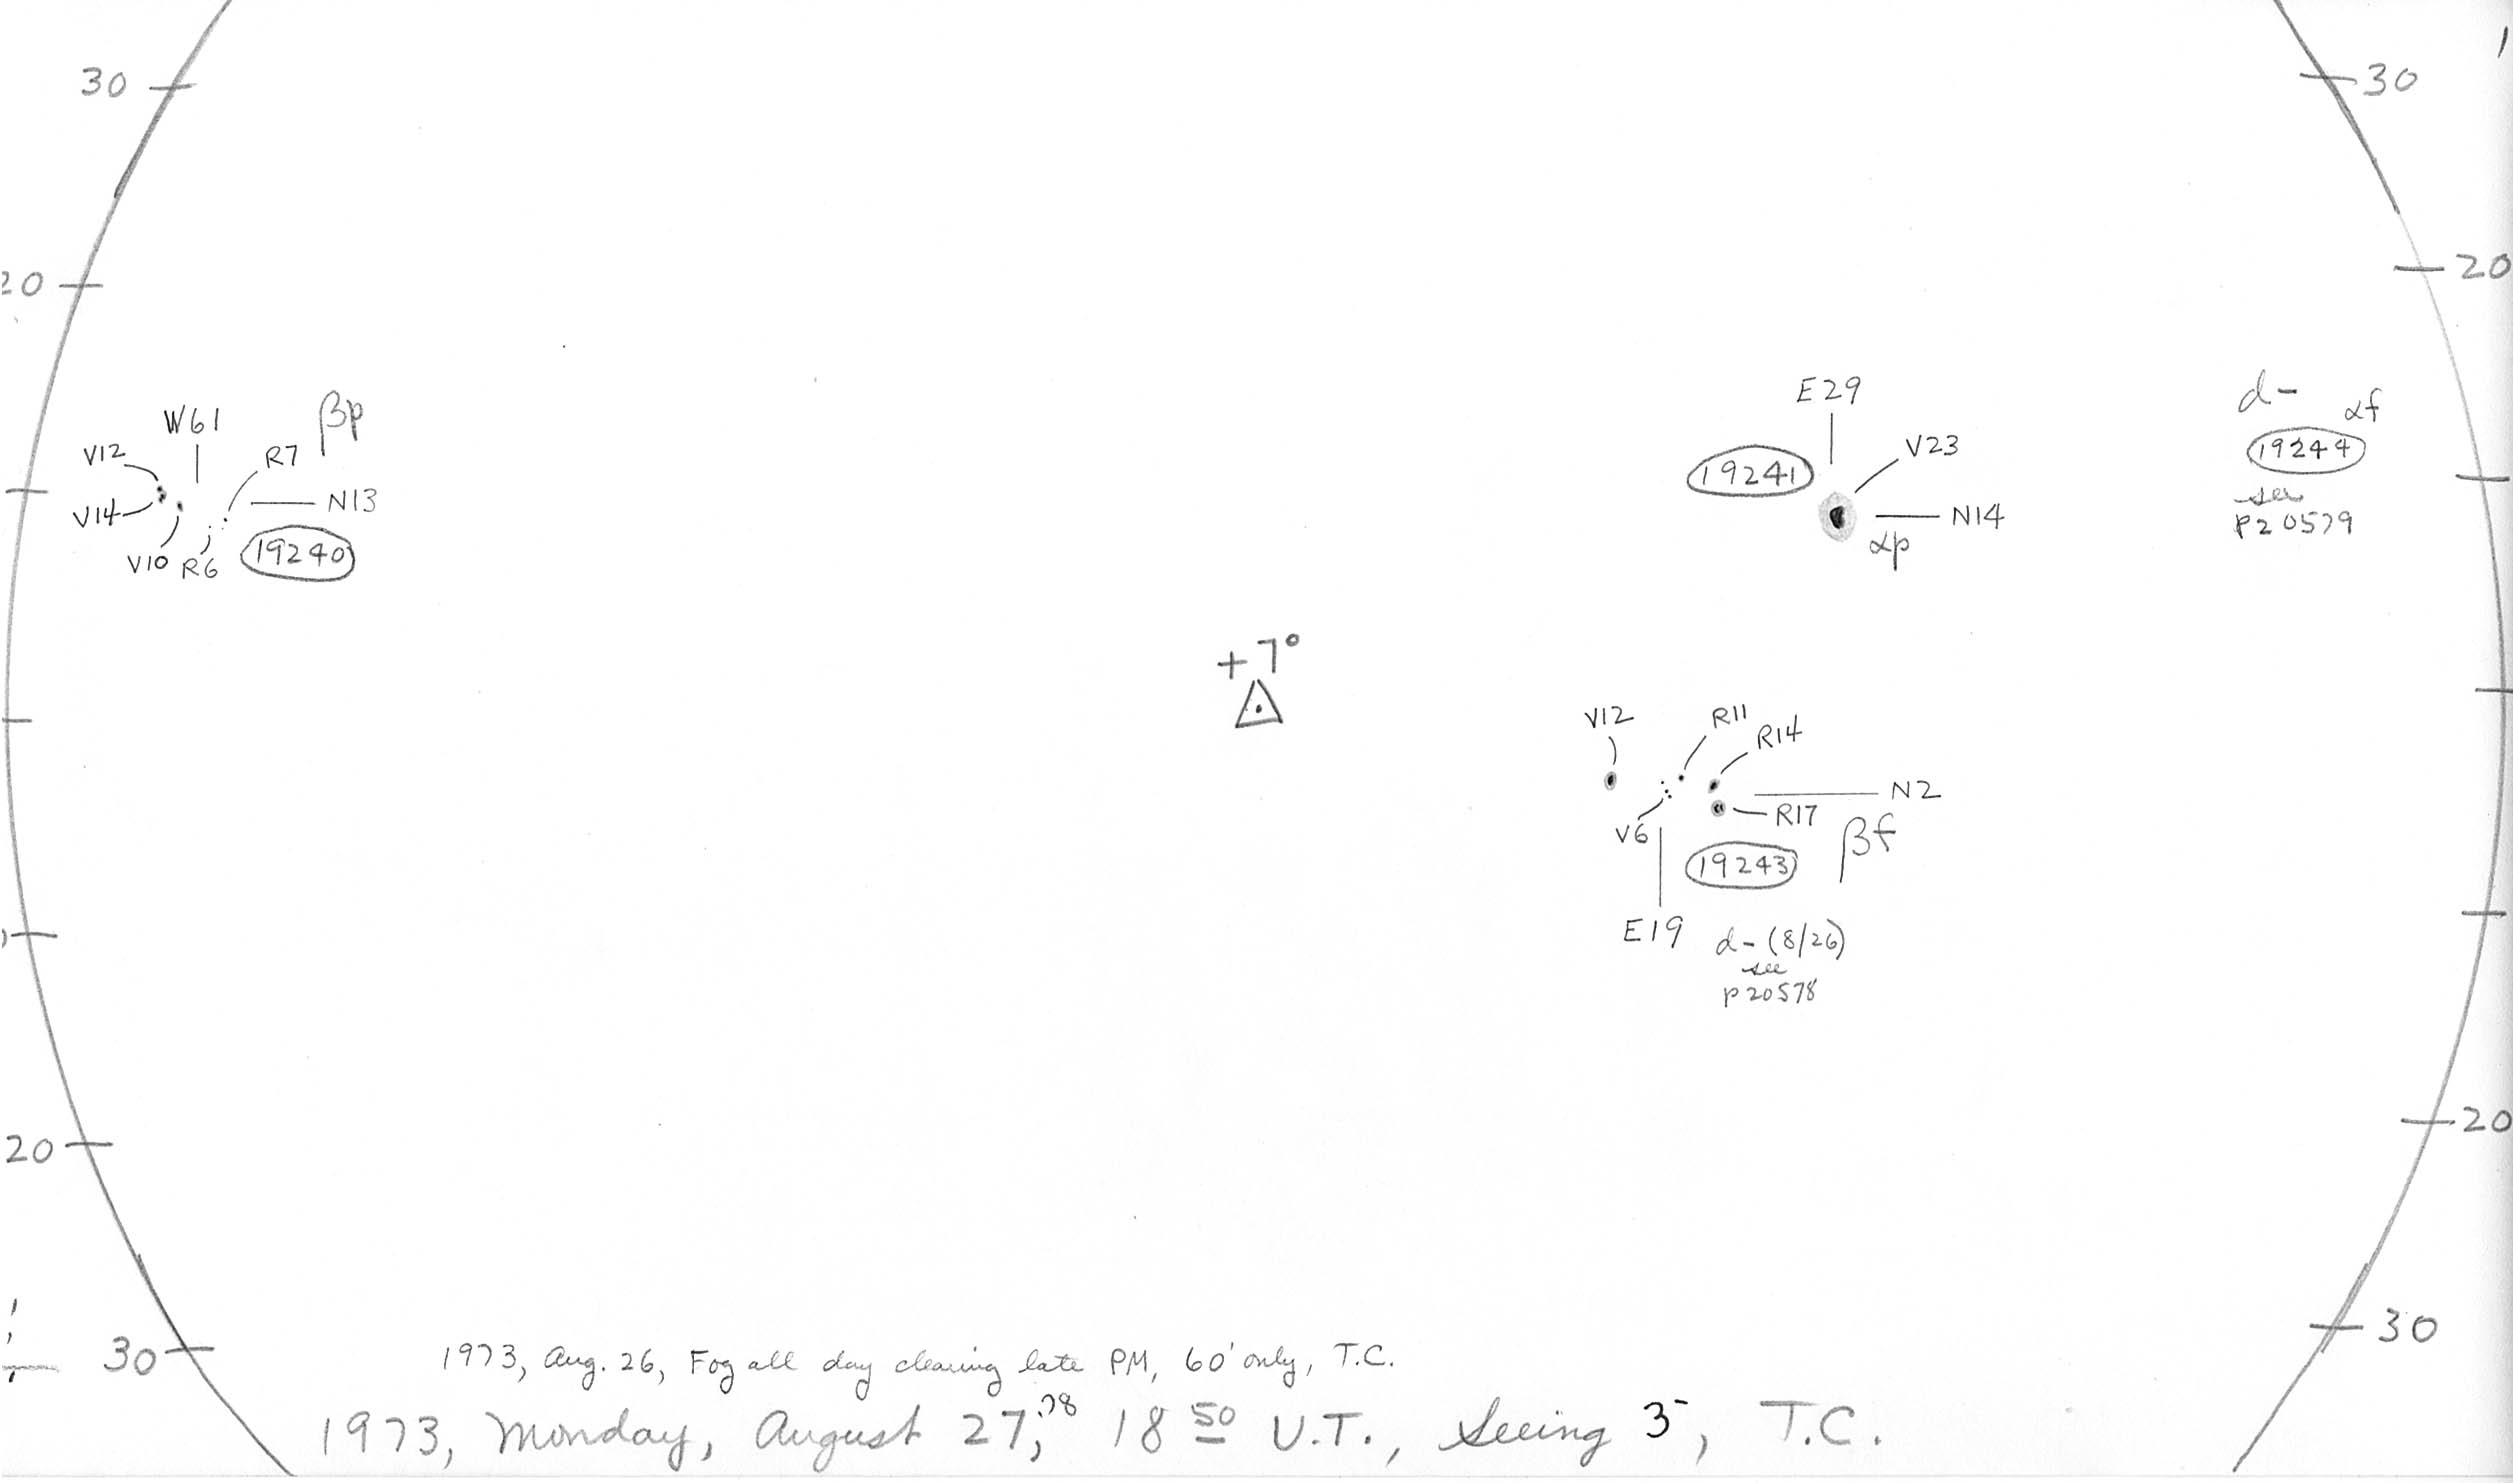 30
30
20
20
E29
d- αf
βp
W61
19244
V12
R7
V23
19241
see
V14
N13
N14
P20579
αp
V10
R6
19240
+7°
V12
R11
R14
N2
R17
V6
βf
19243
E19
d-(8/26)
see
P20578
20
20
30
30
1973, Aug. 26, Fog all day clearing late PM, 60' only, T.C.
1973, Monday, August 27,.78 18 50 U.T., Seeing 3-, T.C.